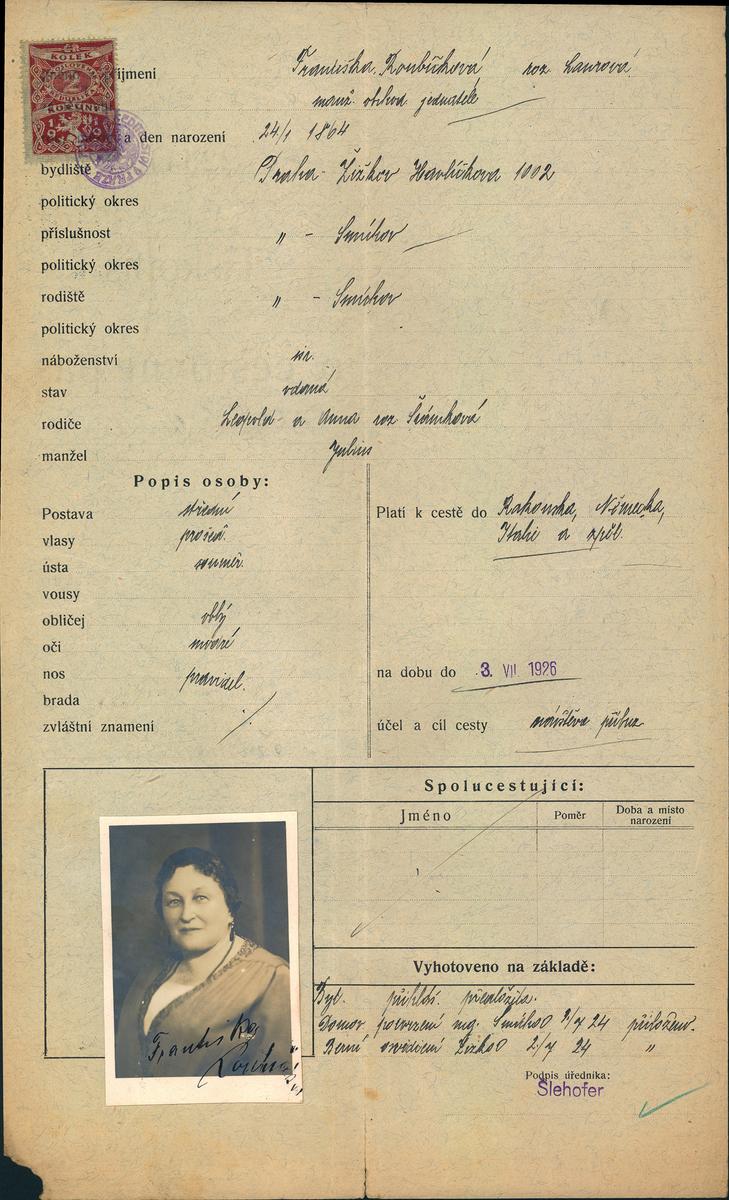 KOLEK
příjmení Františka Koubíčková roz Laurová
manž. obchod jednatele
a den narození 24/1 1864
bydliště Praha - Žižkov Havlíčkova 1002
politický okres
příslušnost „ - Smíchov
politický okres
rodiště „ - Smíchov
politický okres
náboženství
stav vdaná
rodiče Leopold a Anna roz
manžel Julius
Popis osoby:
Postava střední
vlasy prošed.
ústa souměr.
vousy
obličej oblý
oči modré
nos pravidel.
brada
zvláštní znamení
Platí k cestě do Rakouska, Německa,
Italie a zpět.
na dobu do 3. VII. 1926
účel a cíl cesty návštěva příbuz
Spolucestující:
Jméno Poměr Doba a místo narození
Vyhotoveno na základě:
Byt. přihláš. předložila.
Domov. potvrzení mg. Smíchov 2/7 24 přiloženo.
Berní osvědčení Žižkov 2/7 24 „
Podpis úředníka:
Slehofer
Františka